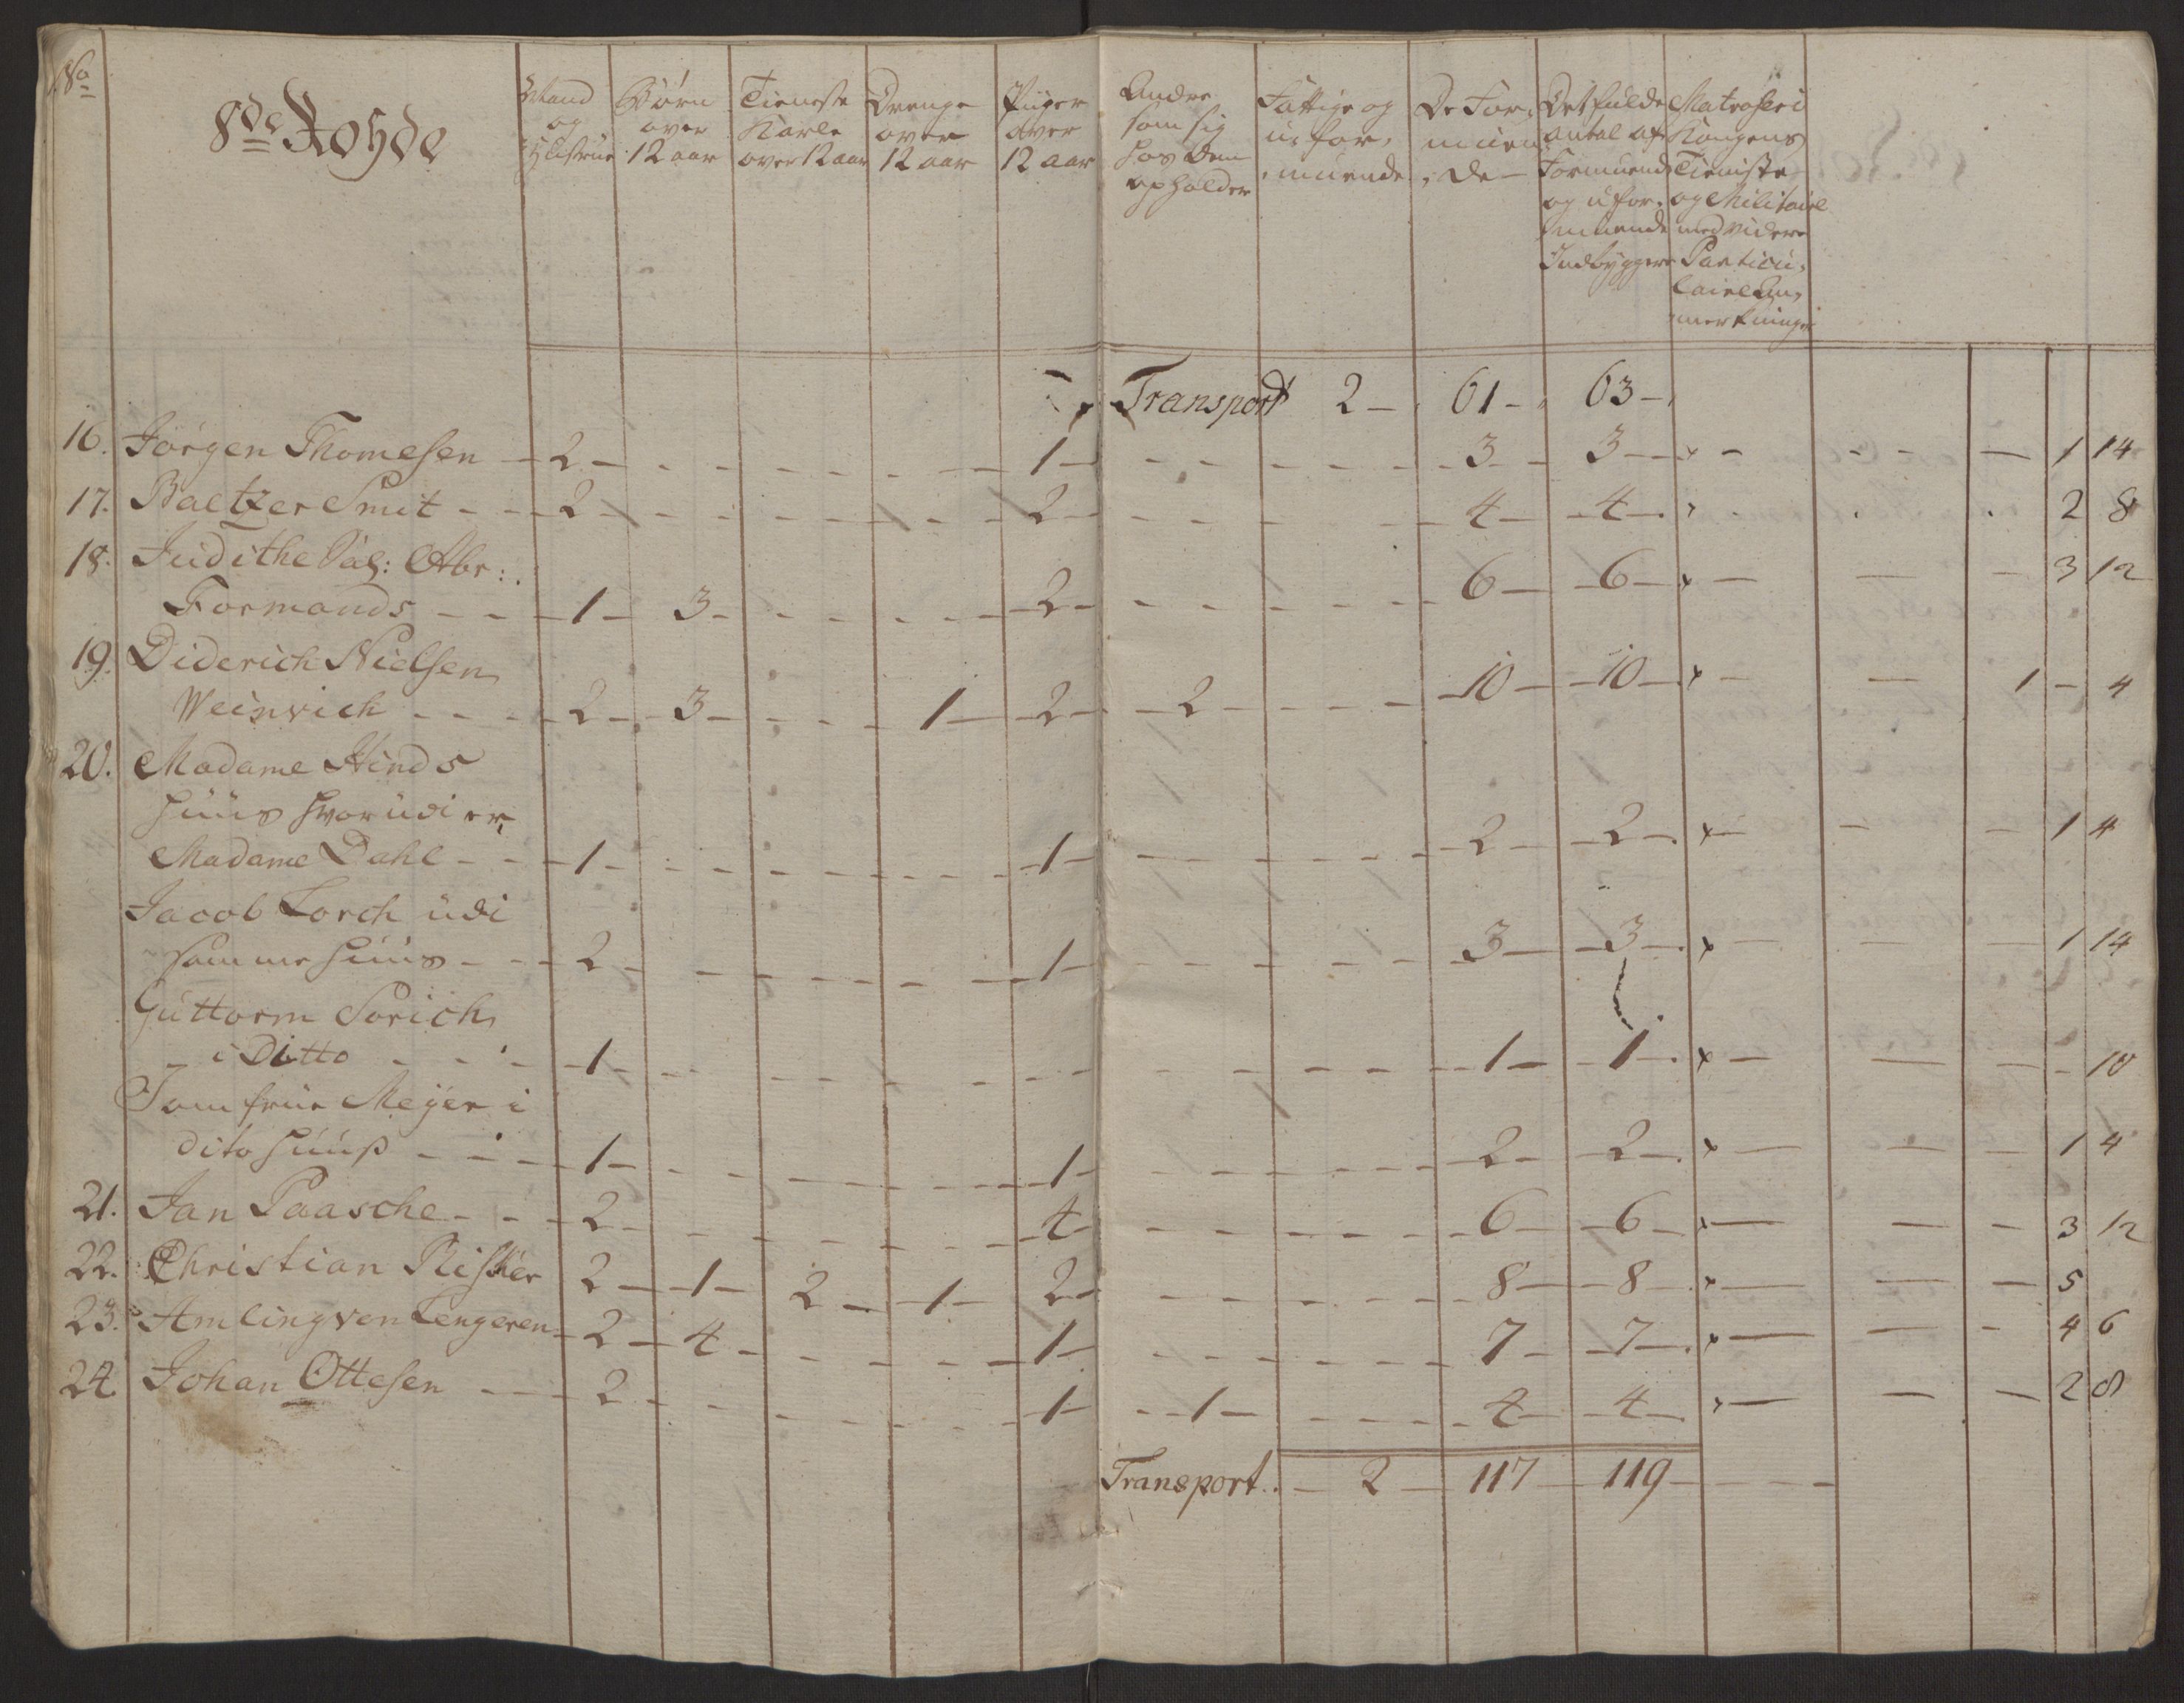 No
8de Rohde
Mand og Hustrue
Børn over 12 aar
Tieneste Karle over 12 aar
Drenge over 12 aar
Piiger over 12 aar
Andre som sig hos dem opholder
Fattige og u-for-muende
De For-muen-de
Det fulde antal af Formuende og ufor-muende Indbyggere
Matroser i Kongens Tieniste og Militaire med videre Particu-laire An-merkninger
Transport 2 — 61 — 63 —
16. Jørgen Thomesen — 2 — 1 — 3 — 3 — x — 1 14
17. Baltzer Smit — 2 — 2 — 4 — 4 — x 2 8
18. Judithe Sal: Abr:
Formands — 1 — 3 — 2 — 6 — 6 — x — 3 12
19. Diderich Nielsen
Weinvich — 2 — 3 — 1 — 2 — 2 — 10 — 10 — x — 1 — 4
20. Madame Hinds
huus hvorudi er
Madame Dahl — 1 — 1 — 2 — 2 — x — 1 4
Jacob Lorck udi
samme huus — 2 — 1 — 3 — 3 — x — 1 14
Guttorm Sorich
i Ditto — 1 — 1 — 1 — x — 10
Jomfrue Meyer i
dito huus — 1 — 1 — 2 — 2 — x — 1 4
21. Jan Paasche — 2 — 4 — 6 — 6 — x — 3 12
22. Christian — 2 — 1 — 2 — 1 — 2 — 8 — 8 — x — 5
23. Amling von Lengeren — 2 — 4 — 1 — 7 — 7 — x — 4 6
24 Johan Ottesen — 2 — 1 — 1 — 4 — 4 — x — 2 8
Transport — 2 — 117 — 119 —